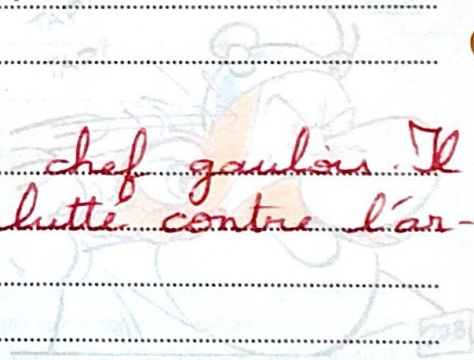 chef gaulois. Il
lutte contre l'ar-